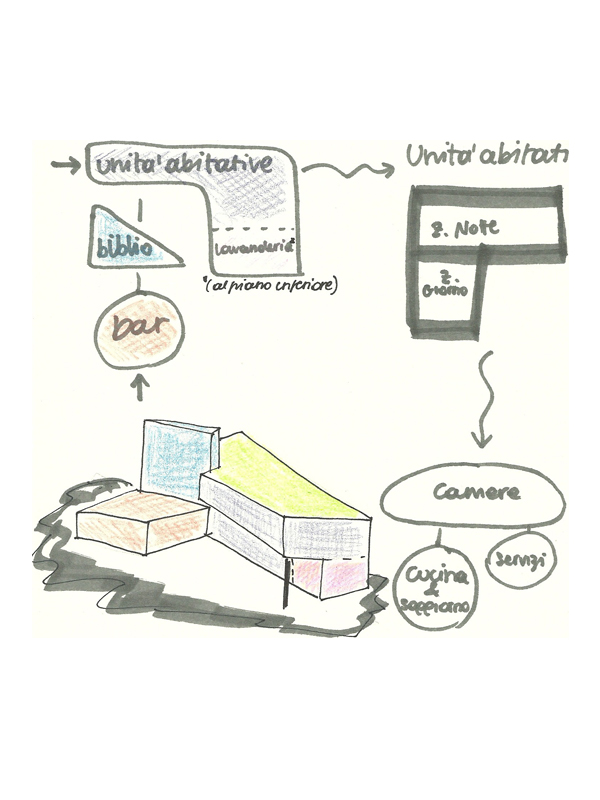 unita' abitative
Unita' abitati
biblio
lavanderia*
*(al piano inferiore)
bar
z. Notte
z.
Giorno
camere
cucina
&
soggiorno
servizi